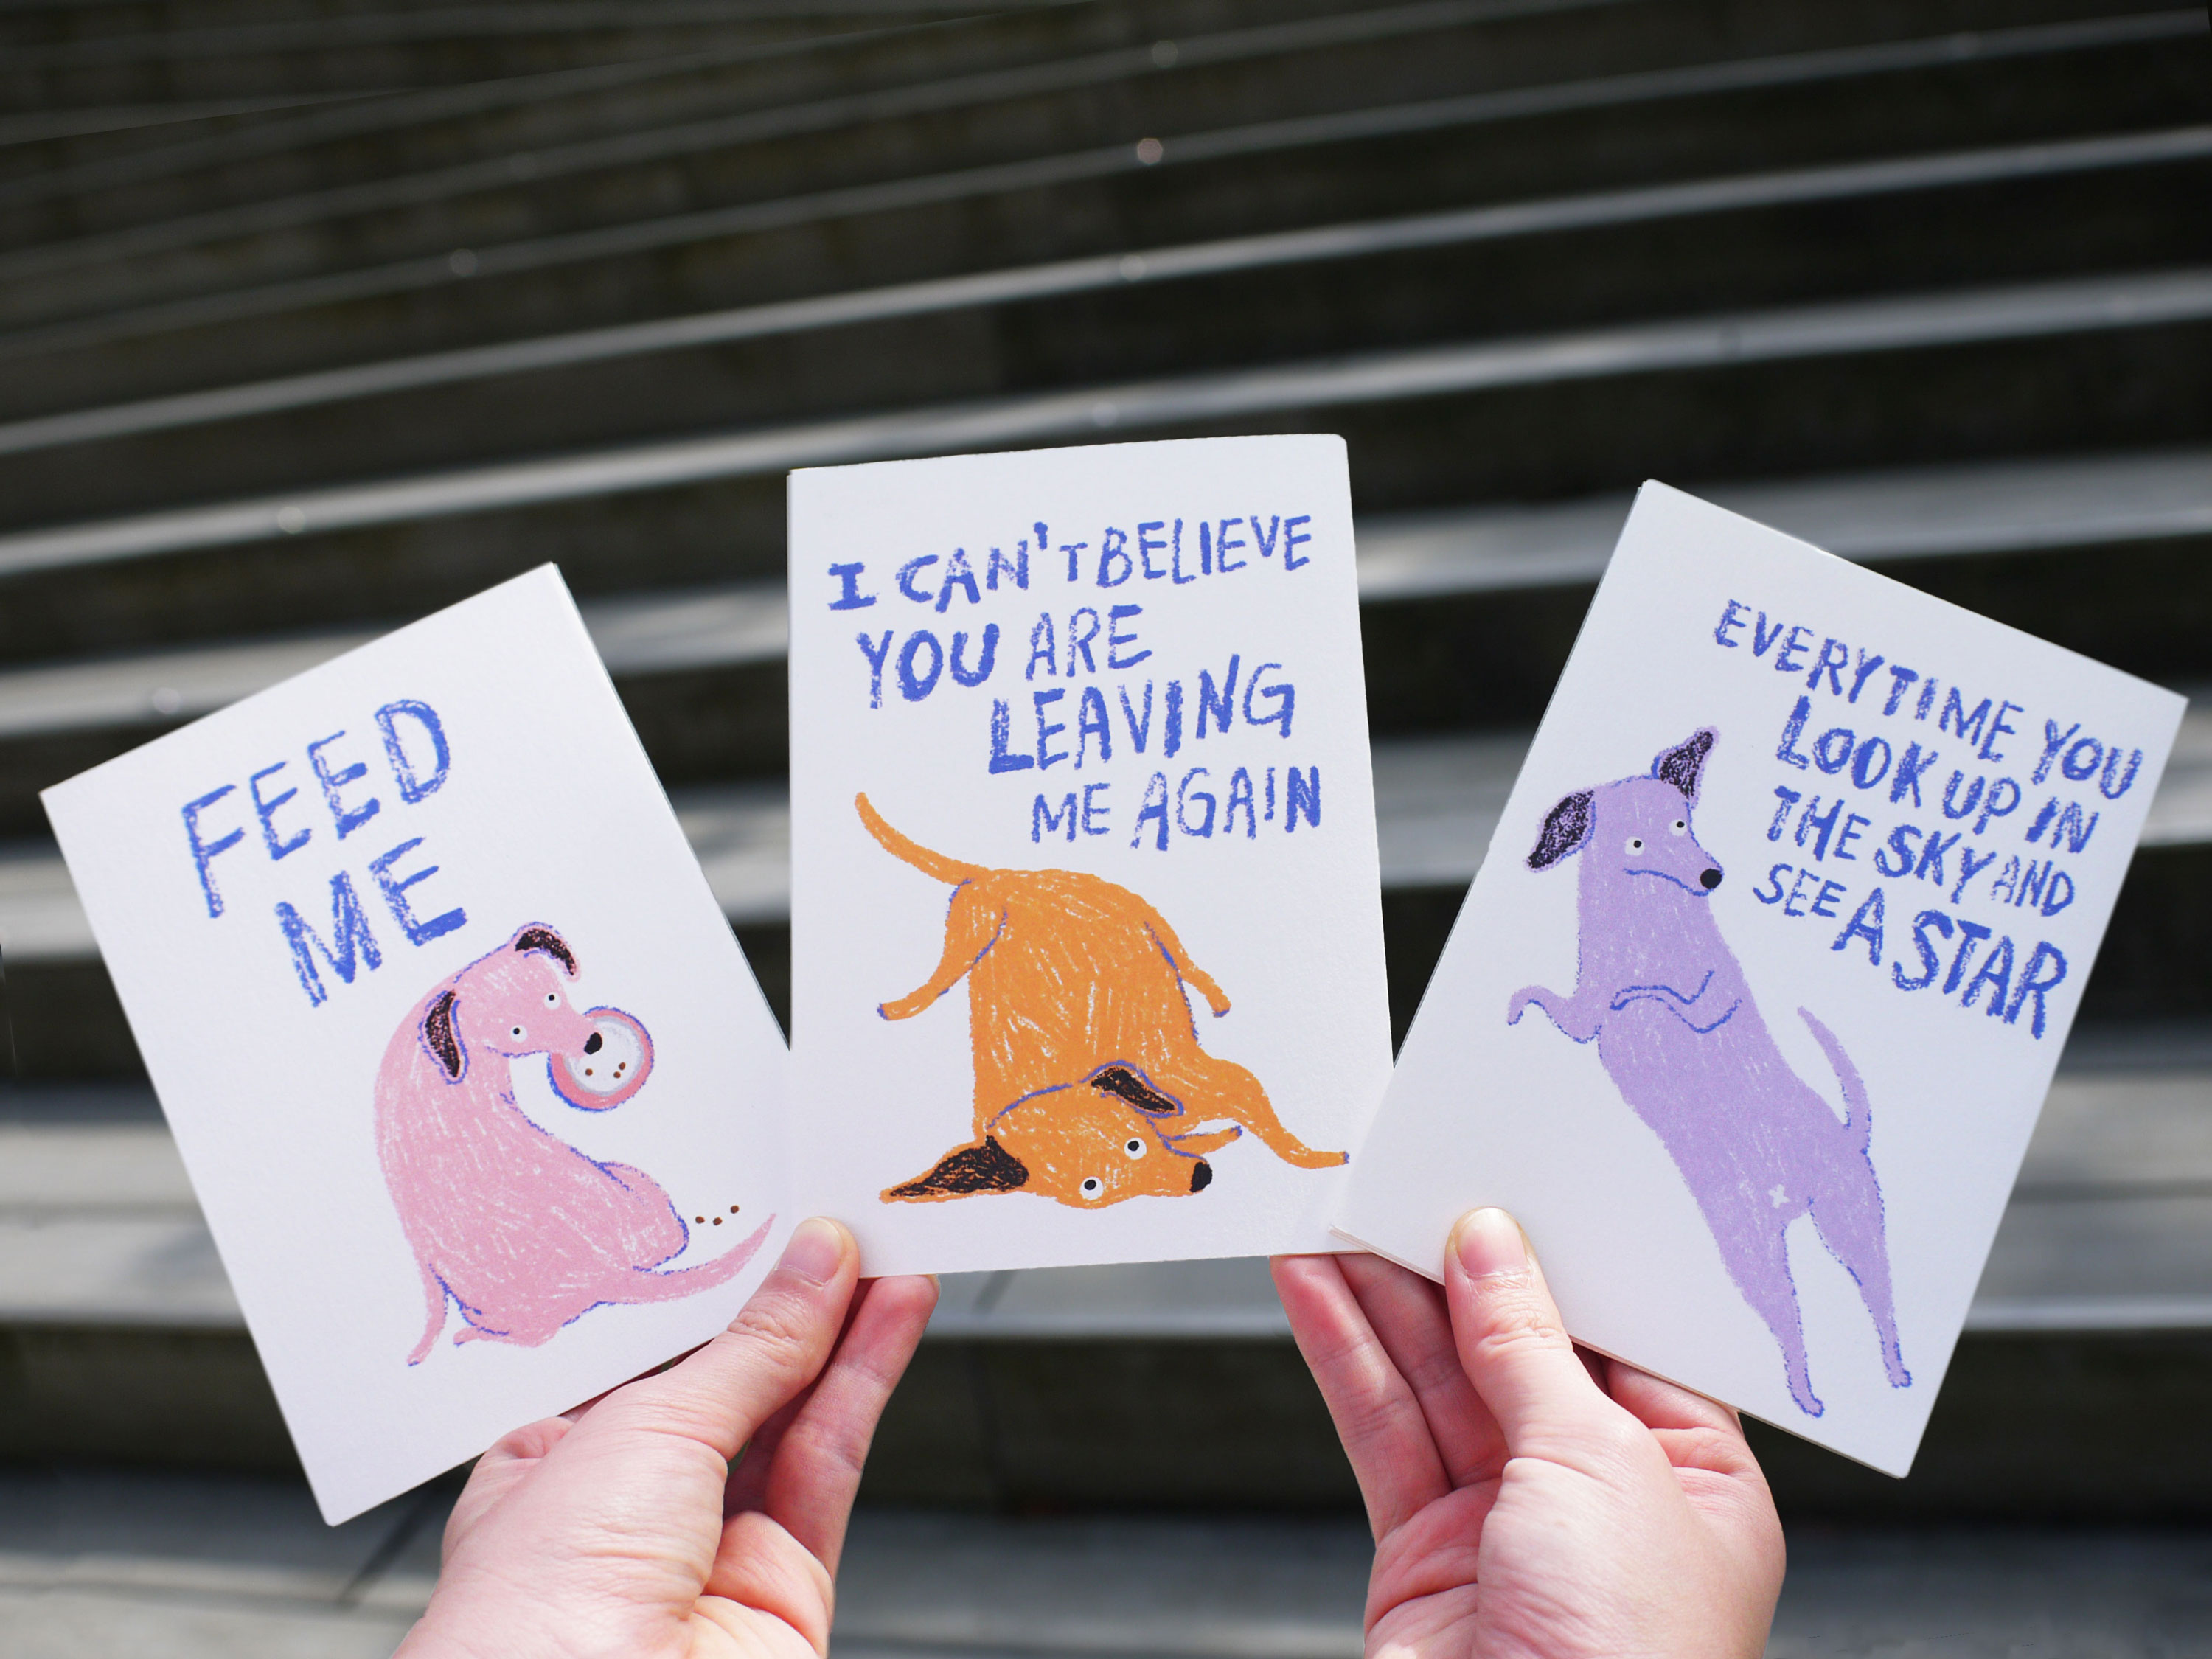 FEED
ME
I CAN'T BELIEVE
YOU ARE
LEAVING
ME AGAIN
EVERYTIME YOU
LOOK UP IN
THE SKY AND
SEE A STAR